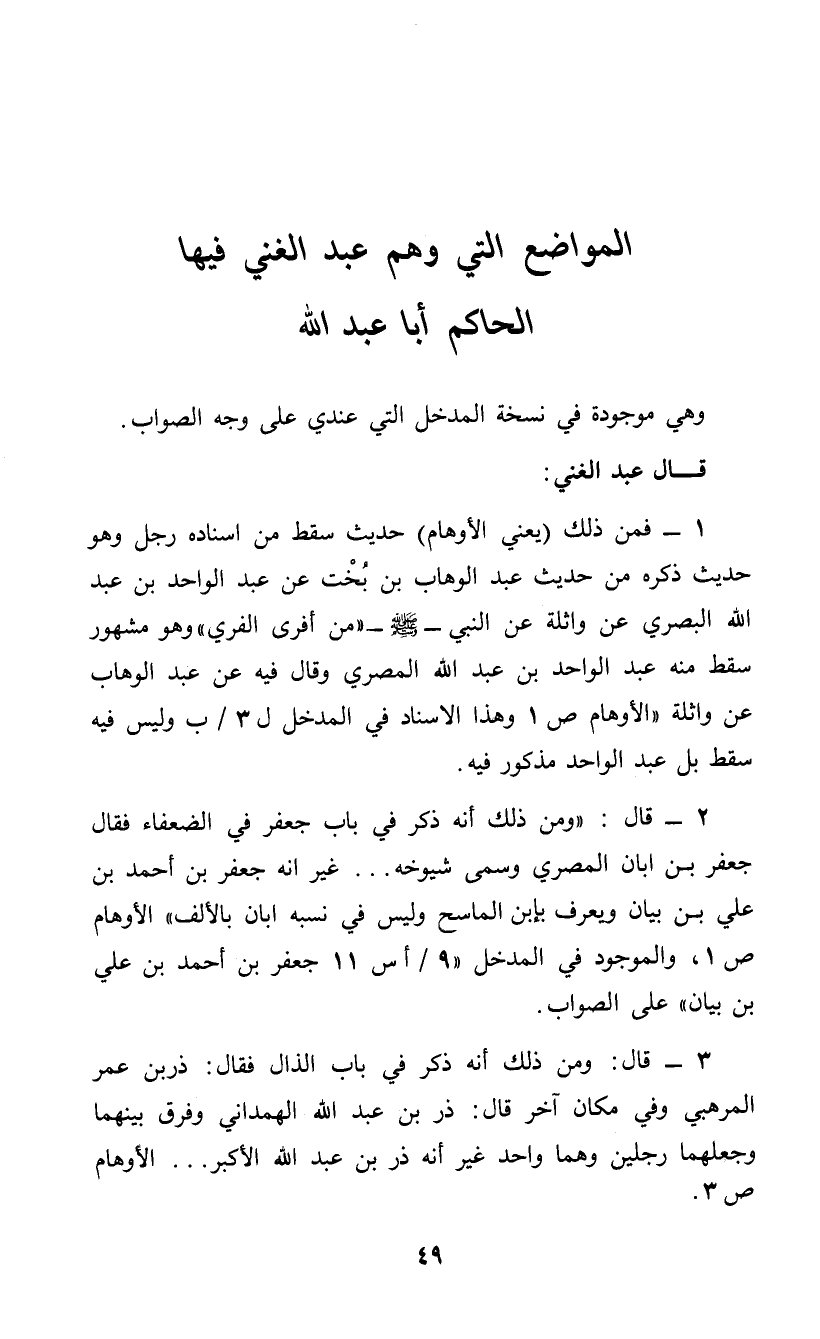 المواضع التي وهم عبد الغني فيها
الحاكم أبا عبد الله
وهي موجودة في نسخة المدخل التي عندي على وجه الصواب.
قـــال عبد الغني:
١ ـ فمن ذلك (يعني الأوهام) حديث سقط من اسناده رجل وهو
حديث ذكره من حديث عبد الوهاب بن بُخْت عن عبد الواحد بن عبد
الله البصري عن واثلة عن النبي ـ ﷺ ـ «من أفرى الفري» وهو مشهور
سقط منه عبد الواحد بن عبد الله المصري وقال فيه عن عبد الوهاب
عن واثلة «الأوهام ص ١ وهذا الاسناد في المدخل ل ٣ / ب وليس فيه
سقط بل عبد الواحد مذكور فيه.
٢ ـ قال : «ومن ذلك أنه ذكر في باب جعفر في الضعفاء فقال
جعفر بـن ابان المصري وسمى شيوخه... غير انه جعفر بن أحمد بن
علي بـن بيان ويعرف بإبن الماسح وليس في نسبه ابان بالألف» الأوهام
ص ١، والموجود في المدخل «٩ / أ س ١١ جعفر بن أحمد بن علي
بن بيان» على الصواب.
٣ ـ قال: ومن ذلك أنه ذكر في باب الذال فقال: ذربن عمر
المرهبي وفي مكان آخر قال: ذر بن عبد الله الهمداني وفرق بينهما
وجعلهما رجلين وهما واحد غير أنه ذر بن عبد الله الأكبر... الأوهام
ص ٣.
٤٩